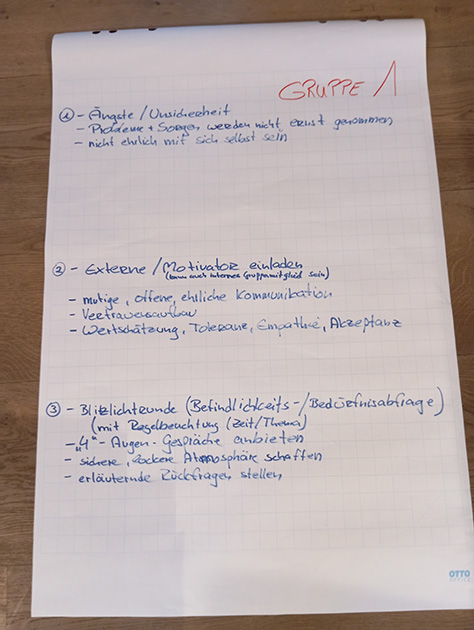 GRUPPE 1
① - Ängste / Unsicherheit
- Probleme + Sorgen werden nicht ernst genommen
- nicht ehrlich mit sich selbst sein
② - Externe / Motivator einladen
(kann auch internes Gruppenmitglied sein)
- mutige, offene, ehrliche Kommunikation
- Vertrauensaufbau
- Wertschätzung, Toleranz, Empathie, Akzeptanz
③ - Blitzlichtrunde (Befindlichkeits-/Bedürfnisabfrage)
(mit Regelbeuchtung (Zeit/Thema)
- „4"-Augen-Gespräche anbieten
- sichere, lockere Atmosphäre schaffen
- erläuternde Rückfragen stellen
OTTO
OFFICE